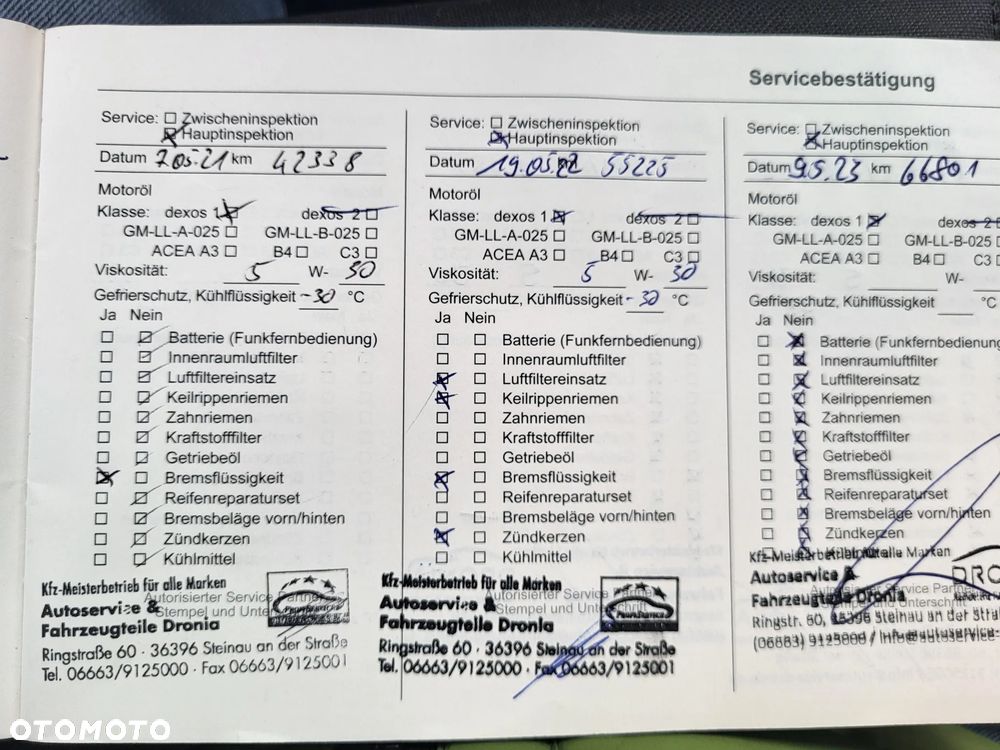 Servicebestätigung
Service: Zwischeninspektion
Hauptinspektion
Datum 7.05.21 km 42338
Motoröl
Klasse: dexos 1 dexos 2
GM-LL-A-025 GM-LL-B-025
ACEA A3 B4 C3
Viskosität: 5 W- 30
Gefrierschutz, Kühlflüssigkeit -30 °C
Ja Nein
Batterie (Funkfernbedienung)
Innenraumluftfilter
Luftfiltereinsatz
Keilrippenriemen
Zahnriemen
Kraftstofffilter
Getriebeöl
Bremsflüssigkeit
Reifenreparaturset
Bremsbeläge vorn/hinten
Zündkerzen
Kühlmittel
Kfz-Meisterbetrieb für alle Marken
Autorisierter Service Partner
Autoservice &
Stempel und Unterschrift
Fahrzeugteile Dronia
Ringstraße 60 · 36396 Steinau an der Straße
Tel. 06663/9125000 · Fax 06663/9125001
Service: Zwischeninspektion
Hauptinspektion
Datum 19.05.22 55225
Motoröl
Klasse: dexos 1 dexos 2
GM-LL-A-025 GM-LL-B-025
ACEA A3 B4 C3
Viskosität: 5 W- 30
Gefrierschutz, Kühlflüssigkeit -30 °C
Ja Nein
Batterie (Funkfernbedienung)
Innenraumluftfilter
Luftfiltereinsatz
Keilrippenriemen
Zahnriemen
Kraftstofffilter
Getriebeöl
Bremsflüssigkeit
Reifenreparaturset
Bremsbeläge vorn/hinten
Zündkerzen
Kühlmittel
Kfz-Meisterbetrieb für alle Marken
Autorisierter Service Partner
Autoservice &
Stempel und Unterschrift
Fahrzeugteile Dronia
Ringstraße 60 · 36396 Steinau an der Straße
Tel. 06663/9125000 · Fax 06663/9125001
Service: Zwischeninspektion
Hauptinspektion
Datum 9.5.23 km 66801
Motoröl
Klasse: dexos 1 dexos 2
GM-LL-A-025 GM-LL-B-02
ACEA A3 B4 C3
Viskosität: W-
Gefrierschutz, Kühlflüssigkeit °C
Ja Nein
Batterie (Funkfernbedienung
Innenraumluftfilter
Luftfiltereinsatz
Keilrippenriemen
Zahnriemen
Kraftstofffilter
Getriebeöl
Bremsflüssigkeit
Reifenreparaturset
Bremsbeläge vorn/hinten
Zündkerzen
Kfz-Meisterbetrieb für alle Marken
Autoservice &
Fahrzeugteile Dronia
Ringstr. 60, 36396 Steinau an der Straß
(06663) 9125000
OTOMOTO